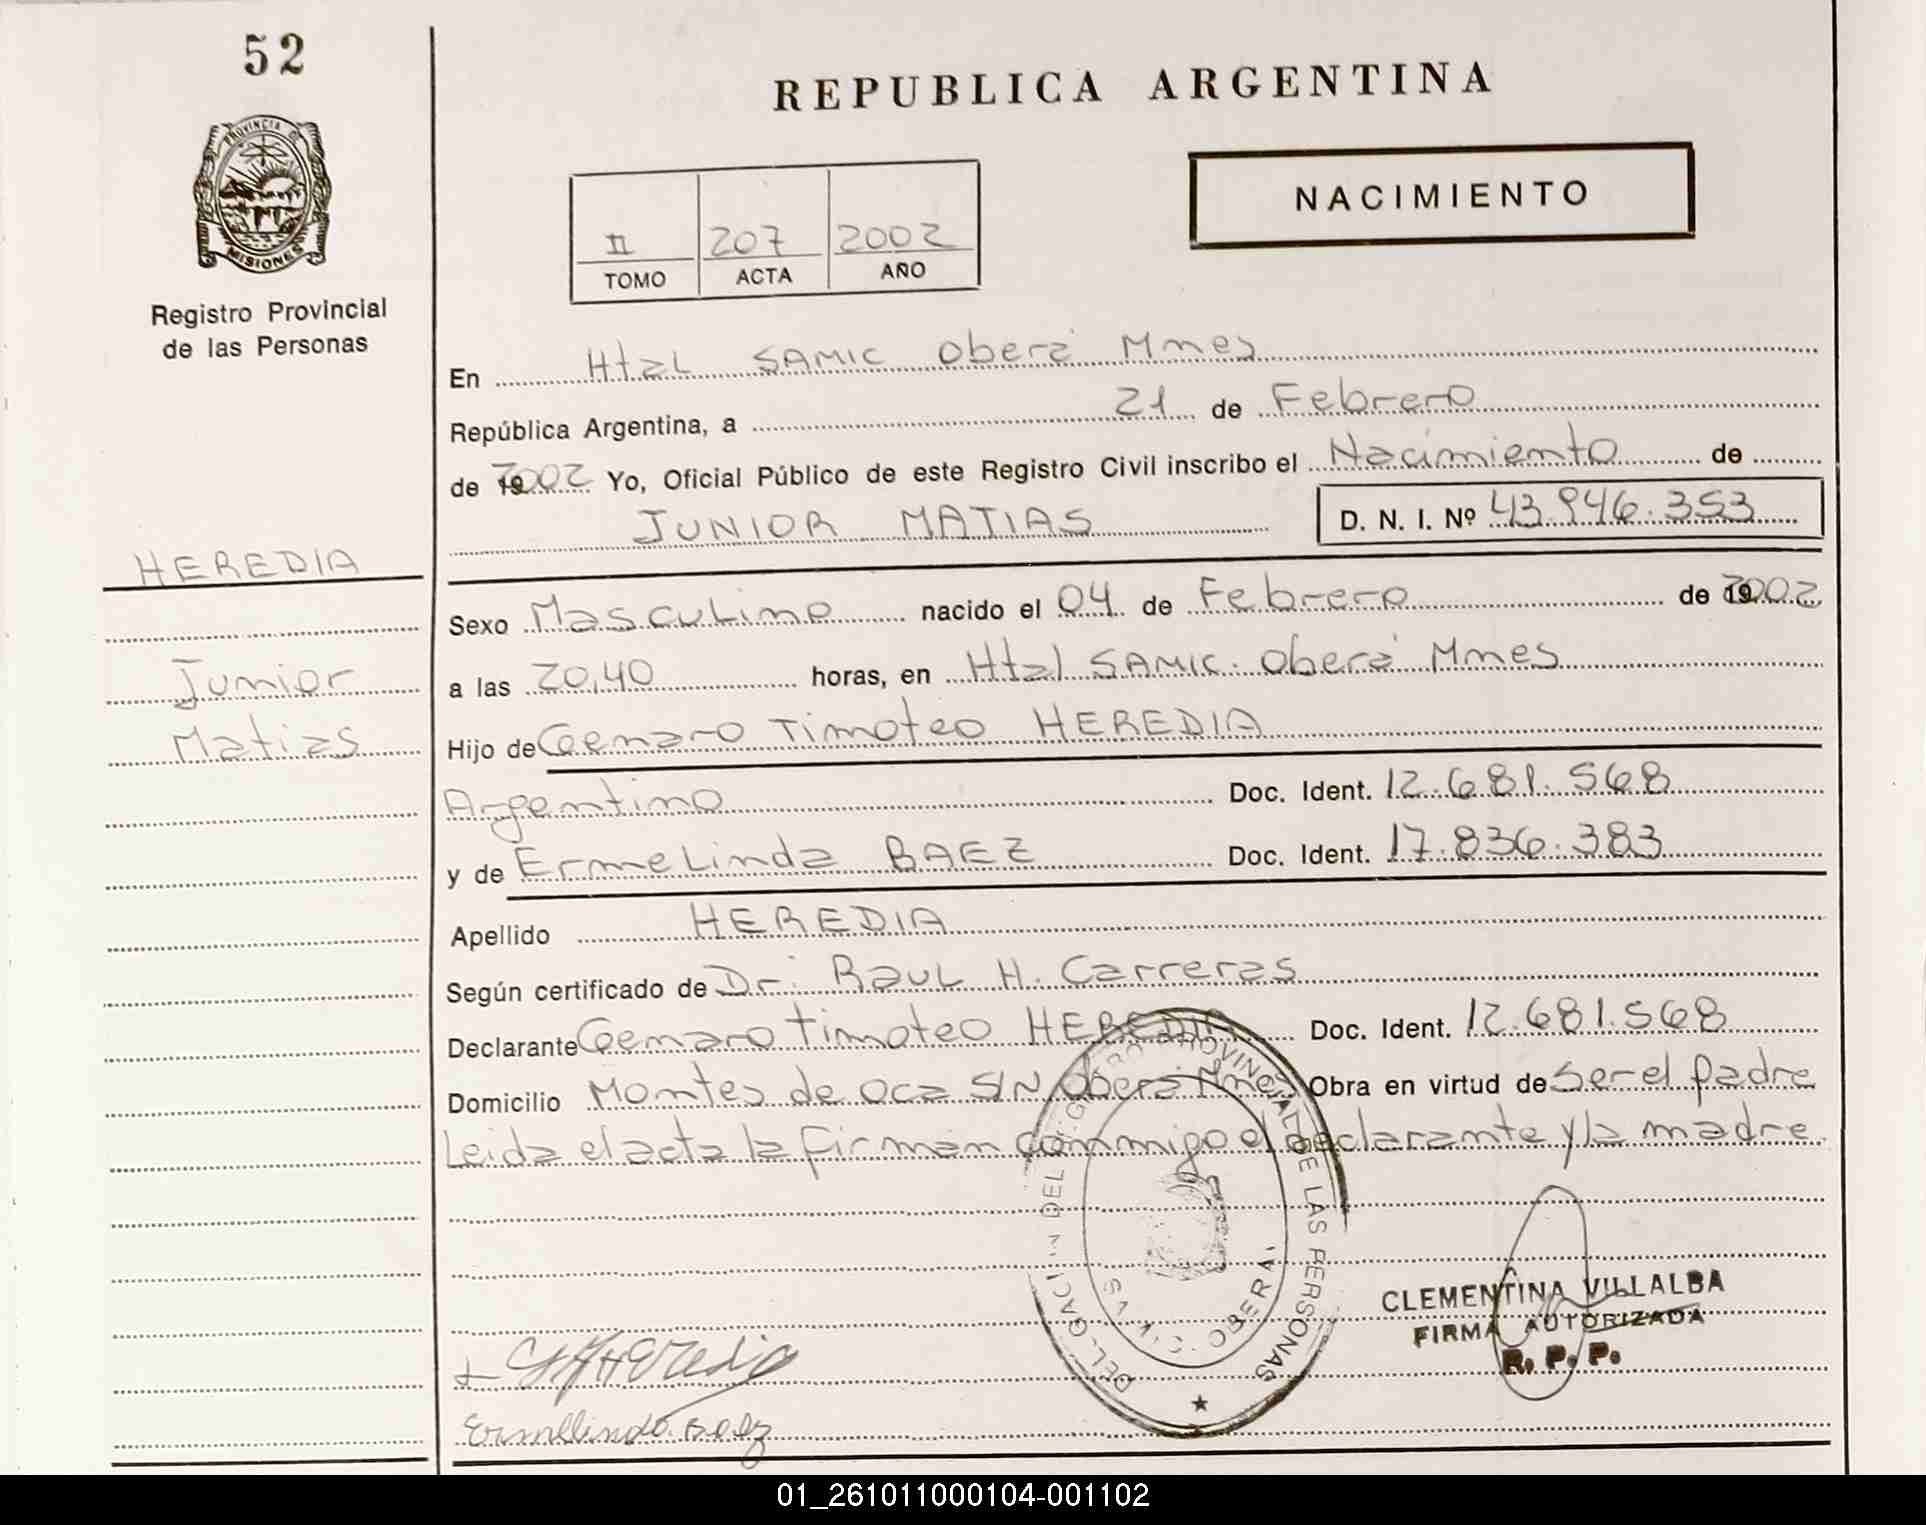 52
REPUBLICA ARGENTINA
PROVINCIA DE
MISIONES
NACIMIENTO
II 207 2002
TOMO ACTA AÑO
Registro Provincial
de las Personas
En Htal SAMIC Oberá Mnes
República Argentina, a 21 de Febrero
de 2002 Yo, Oficial Público de este Registro Civil inscribo el Nacimiento de
JUNIOR MATIAS D. N. I. Nº 43.946.353
HEREDIA
Sexo Masculino nacido el 04 de Febrero de 2002
Junior
a las 20,40 horas, en Htal SAMIC. Oberá Mnes
Matias
Hijo de Genaro Timoteo HEREDIA
Argentino Doc. Ident. 12.681.568
y de Ermelinda BAEZ Doc. Ident. 17.836.383
Apellido HEREDIA
Según certificado de Dr. Raul H. Carreras
Declarante Genaro Timoteo HEREDIA Doc. Ident. 12.681.568
Domicilio Montes de Oca S/N Oberá Mnes Obra en virtud de Ser el padre
Leida el acta la firman conmigo el declarante y la madre
PROVINCIAL DE LAS PERSONAS
OBERA
CLEMENTINA VILLALBA
FIRMA AUTORIZADA
R. P. P.
Heredia
Ermelinda Baez
01_261011000104-001102